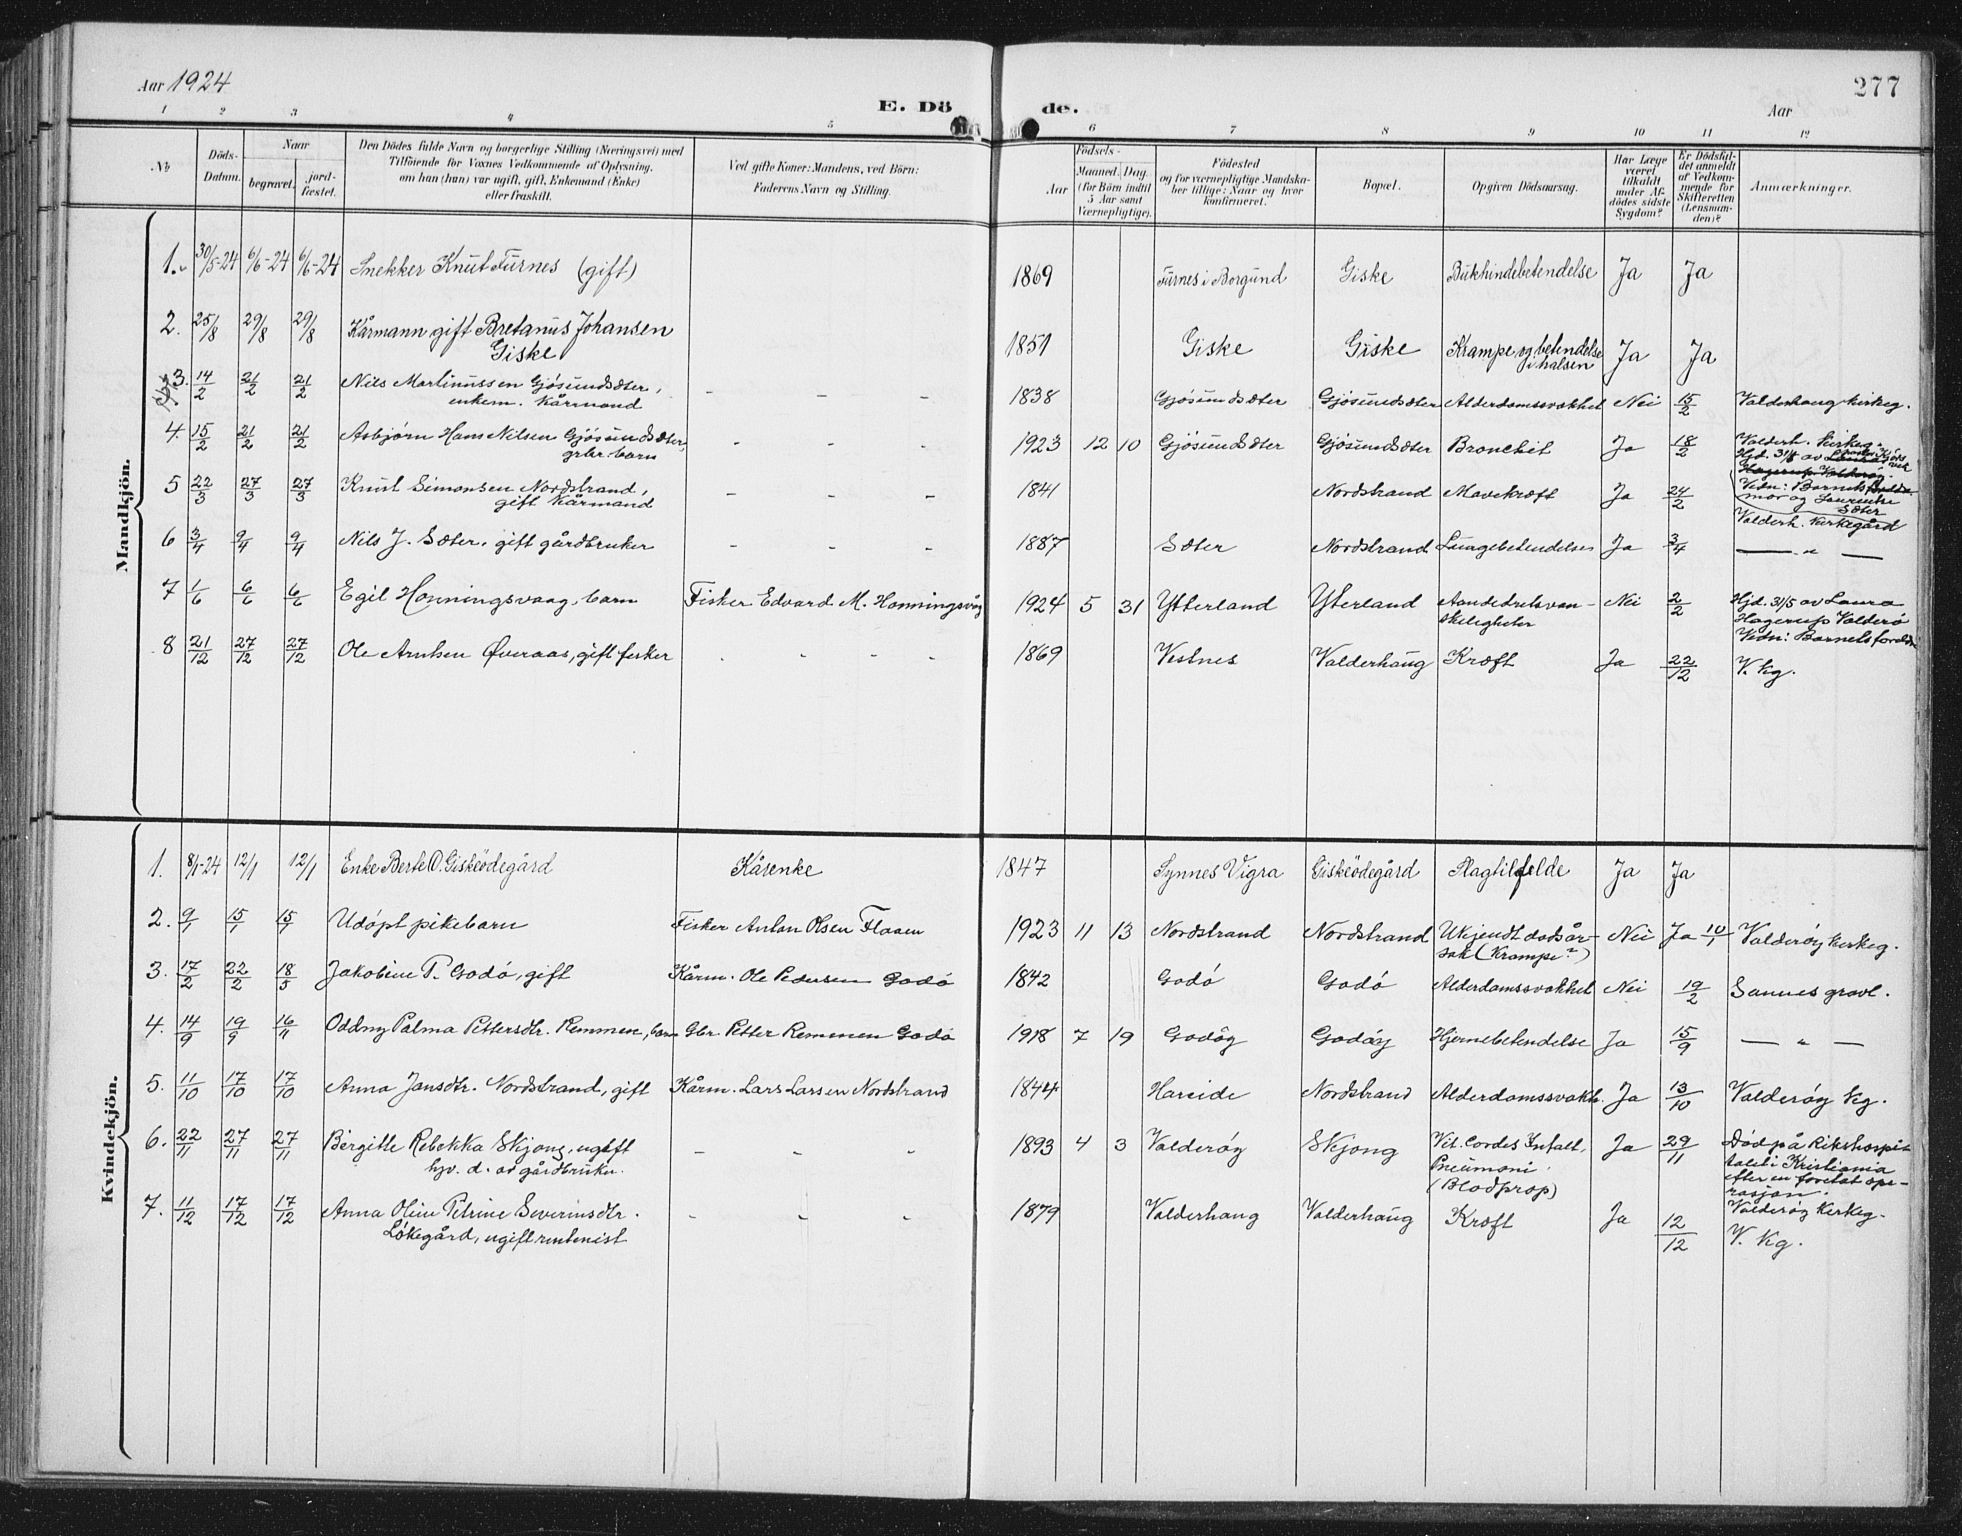 Aar 1924
277
E. Dö de.
Aar
1 2 3 4 5 6 7 8 9 10 11 12
No
Döds-Datum.
Naar
begravet.
jordfæstet.
Den Dödes fulde Navn og borgerlige Stilling (Næringsvei) med
Tilföiende for Voxnes Vedkommende af Oplysning,
om han (hun) var ugift, gift, Enkemand (Enke)
eller fraskilt.
Ved gifte Koner: Mandens, ved Börn:
Faderens Navn og Stilling.
Födsels-
Aar
Maaned. Dag.
(for Börn indtil
5 Aar samt
Værnepligtige).
Födested
og for værnepligtige Mandska-
ber tillige: Naar og hvor
konfirmeret.
Bopæl.
Opgiven Dödsaarsag.
Har Læge
været
tilkaldt
under Af-
dödes sidste
Sygdom?
Er Dödsfal-
det anmeldt
af Vedkom-
mende for
Skifteretten
(Lensman-
den)?
Anmærkninger.
Mandkjön.
1. 30/5-24 6/6-24 6/6-24 Snekker Knut Furnes (gift) 1869 Furnes i Borgund Giske Bukhindebetendelse Ja Ja
2. 25/8 29/8 29/8 Kårmann gift Bretanus Johansen 1851 Giske Giske Krampe og betendelse Ja Ja
Giske i halsen
3. 14/2 21/2 21/2 Nils Martinussen Gjösundsæter, - - - 1838 Gjösundsæter Gjösundsæter Alderdomssvakhet Nei 15/2 Valderhaug kirkeg.
enkem. Kårmand
4. 15/2 21/2 21/2 Asbjørn Hans Nilsen Gjösundsæter, - - - 1923 12 10 Gjösundsæter Gjösundsæter Bronchit Ja 18/2 Valderh. Kirkeg.
grbr. barn Hjd. 31/8 av
Hagerup Valderö
5 22/3 27/3 27/3 Knut Simonsen Nordstrand, - - - 1841 Nordstrand Mavekræft Ja 24/2 Vidn: Barnets
gift Kårmand mor og Laurentse
Sæter
6 3/4 9/4 9/4 Nils J. Sæter, gift gårdbruker - - - 1887 Sæter Nordstrand Lungebetendelse Ja 3/4 Valderh. Kirkegård
— " —
7 1/6 6/6 6/6 Egil Honningsvaag, barn Fisker Edvard M. Honningsvåg 1924 5 31 Ytterland Yterland Aandedretsvan- Nei 2/2 Hjd. 31/5 av Laura
skeligheter Hagerup Valderö
Vidn: Barnets foreldre
8 21/12 27/12 27/12 Ole Arnhsen Øveraas, gift fisker - - - - 1869 Vestnes Valderhaug Kræft Ja 22/12 V. kg.
Kvindekjön.
1. 8/1-24 12/1 12/1 Enke Berte O. Giskeödegård Kårenke 1847 Synnes Vigra Giskeödegård Slagtilfelde Ja Ja
2. 9/1 15/1 15/1 Udöpt pikebarn Fisker Anton Olsen Flaaen 1923 11 13 Nordstrand Nordstrand Ukjendt dødsår- Nei Ja 10/1 Valderöy kirkeg.
sak (Krampe?)
3. 17/2 22/2 18/5 Jakobine P. Godö, gift Kårm. Ole Pedersen Godö 1842 Godö Godö Alderdomssvakhet Nei 19/2 Sannes gravl.
4. 14/9 19/9 16/11 Oddny Palma Pettersdtr. Remmen, barn Gbr. Petter Remmen Godö 1918 7 19 Godöy Godöy Hjernebetendelse Ja 15/9 — " —
5. 11/10 17/10 17/10 Anna Jansdtr. Nordstrand, gift Kårm. Lars Larsen Nordstrand 1844 Hareide Nordstrand Alderdomssvakh. Ja 13/10 Valderöy kg.
6. 22/11 27/11 27/11 Bergitte Rebekka Skjong, ugift - - - 1893 4 3 Valderöy Skjong Vit. Cordes Infalt, Ja 29/11 Død på Rikshospi-
hjv. d. av gårdbruker. Pneumoni talet i Kristiania
(Blodprop) efter en foretat ope-
rasjon.
Valderöy kirkeg.
7. 11/12 17/12 17/12 Anna Oline Petrine Severinsdtr. - - - 1879 Valderhaug Valderhaug Kræft Ja 12/12 V. kg.
Løkegård, ugift rentenist